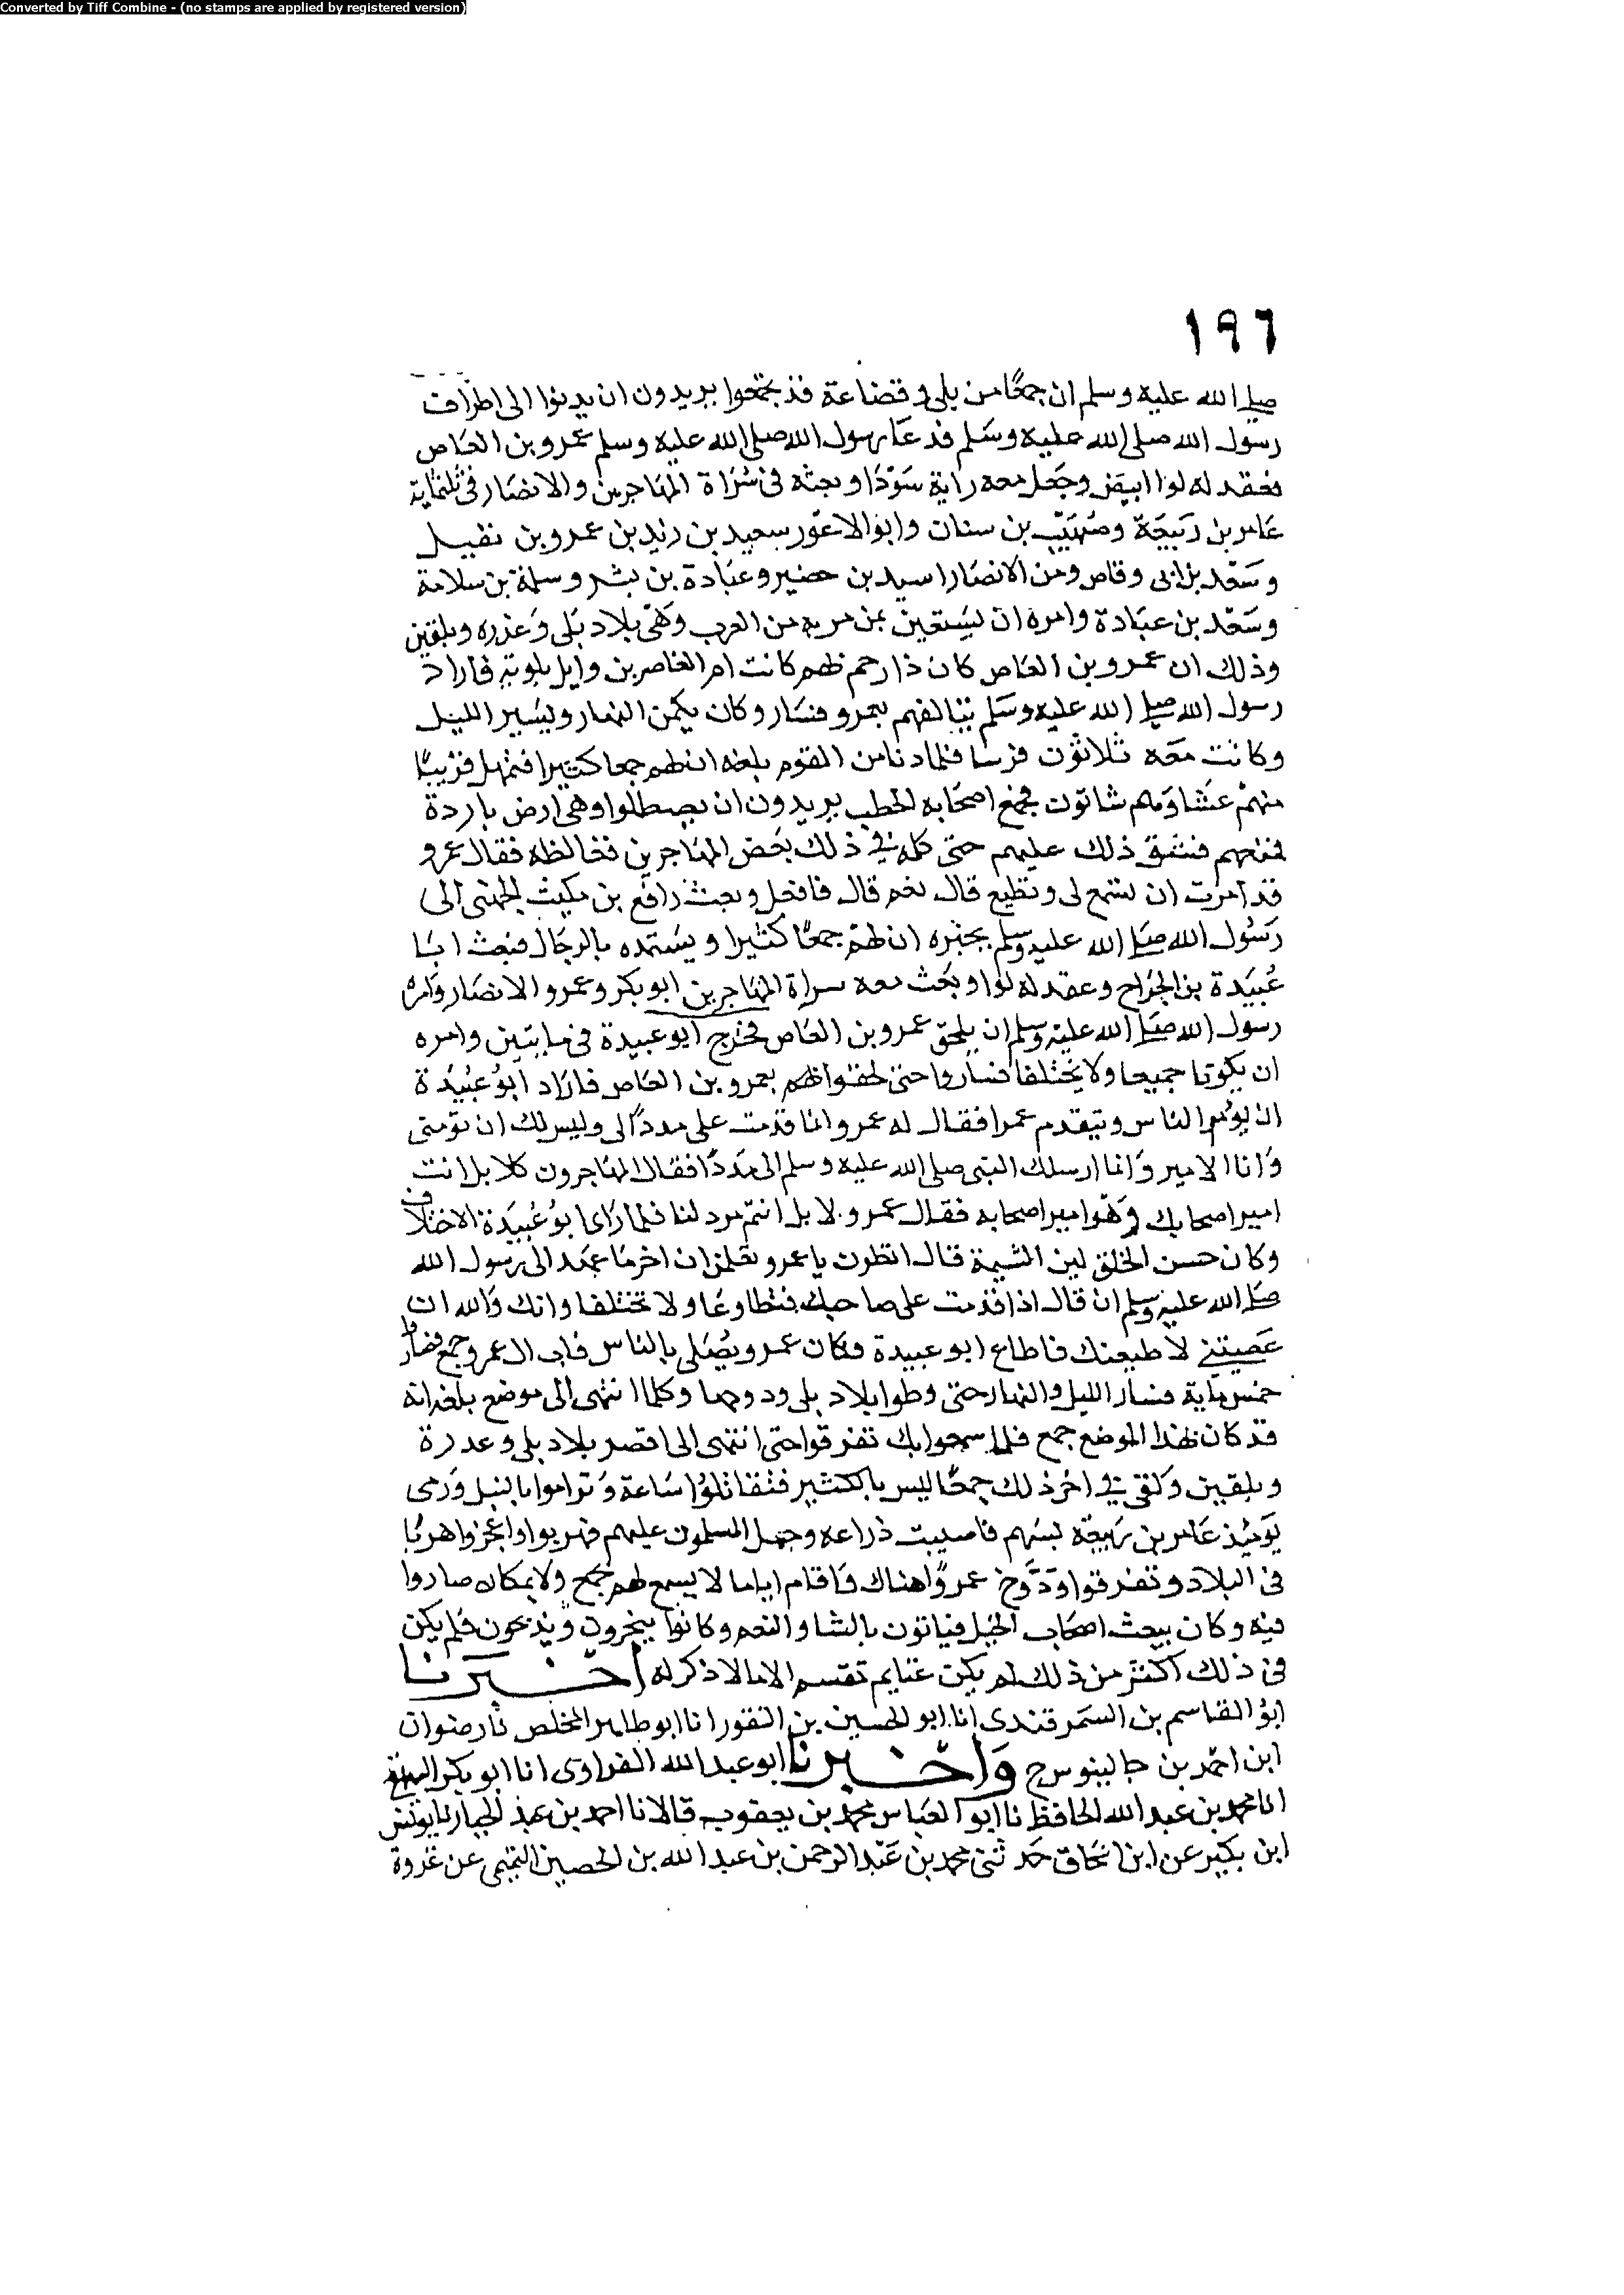 Converted by Tiff Combine - (no stamps are applied by registered version)
١٩٦
صلى الله عليه وسلم ان جمعًا من بلى وقضاعة قد تجمعوا يريدون ان يدنوا الى اطراف
رسول الله صلى الله عليه وسلم فدعا رسول الله صلى الله عليه وسلم عمرو بن العاص
فعقد له لوا ابيض وجعل معه راية سَوْدَا وبعثه فى سُرَاة المهاجرين والانصار فى ثلثماية
عامر بن ربيعة وصُهيب بن سنان وابو الاعور سعيد بن زيد بن عمرو بن نفيل
وسعد بن ابى وقاص ومن الانصار اسيد بن حضير وعبادة بن بشر وسلمة بن سلامة
وسعد بن عبادة وامره ان يستعين بمن مر به من العرب وهى بلاد بلى وعذره وبلقين
وذلك ان عمرو بن العاص كان ذا رحم لهم كانت ام العاص بن وايل بلوية فاراد
رسول الله صلى الله عليه وسلم يتالفهم بعمرو فسار وكان يكمن النهار ويسير الليل
وكانت معه ثلاثون فرسا فلما دنا من القوم بلغه ان لهم جمعا كثيرا فنزل قريبًا
منهم عشا وهم شاتون فجمع اصحابه الحطب يريدون ان يصطلوا وهى ارض باردة
فمنعهم فشق ذلك عليهم حتى كلمه فى ذلك بعض المهاجرين فغالظه فقال عمرو
قد امرت ان تسمع لى وتطيع قال نعم قال فافعل وبعث رافع بن مكيث الجهنى الى
رسول الله صلى الله عليه وسلم يخبره ان لهم جمعًا كثيرا ويستمده بالرجال فبعث ابا
عُبيدة بن الجراح وعقد له لوا وبعث معه سراة المهاجرين ابو بكر وعمر والانصار وامره
رسول الله صلى الله عليه وسلم ان يلحق عمرو بن العاص فخرج ابو عبيدة فى مايتين وامره
ان يكونا جميعا ولا يختلفا فساروا حتى لحقوا لهم بعمرو بن العاص فاراد ابو عُبيدة
ان يؤم الناس ويتقدم عمرا فقال له عمرو انما قدمت على مددًا لى وليس لك ان تؤمنى
وانا الامير وانما ارسلك النبى صلى الله عليه وسلم الى مددًا فقال المهاجرون كلا بل انت
امير اصحابك وهو امير اصحابه فقال عمرو لا بل انتم مدد لنا فلما راى ابو عُبيدة الاختلاف
وكان حسن الخلق لين الشيمة قال انظرن يا عمرو تعلمن ان اخر ما عهد الى رسول الله
صلى الله عليه وسلم ان قال اذا قدمت على صاحبك فتطاوعا ولا تختلفا وانك والله ان
عصيتنى لاطيعنك فاطاع ابو عبيدة فكان عمرو يُصلى بالناس فاب الى عمرو جمع فصاروا
خمس ماية فسار الليل والنهار حتى وطوا بلاد بلى ودوخها وكلما انتهى الى موضع بلغه انه
قد كان بهذا الموضع جمع فلما سمعوا بك تفرقوا حتى انتهى الى اقصر بلاد بلى وعدرة
وبلقين ولقى فى اخر ذلك جمعًا ليس بالكثير فتقاتلوا ساعة وتراموا بالنبل ورمى
يوميذ عامر بن ربيعة بسهم فاصيبت ذراعه وحمل المسلمون عليهم فهربوا واعجزوا هربًا
فى البلاد وتفرقوا ودَوَّخ عمروًا هناك فاقام اياما لا يسمع لهم بجمع ولا بمكان صاروا
فيه وكان يبعث اصحاب الخيل فياتون بالشا والنعم وكانوا ينحرون ويذبحون فلم يكن
فى ذلك اكثر من ذلك لم يكن غنايم تقسم الا ما لا ذكر له اخبرنا
ابو القاسم بن السمرقندى انا ابو الحسين بن النقور انا ابو طاهر المخلص نا رضوان
ابن احمد بن جالينوس ح واخبرنا ابو عبد الله الفراوى انا ابو بكر البيهقى
انا محمد بن عبد الله الحافظ نا ابو العباس محمد بن يعقوب قالا نا احمد بن عبد الجبار نا يونس
ابن بكير عن ابن اسحاق حدثنى محمد بن عبد الرحمن بن عبد الله بن الحصين التميمى عن عروة